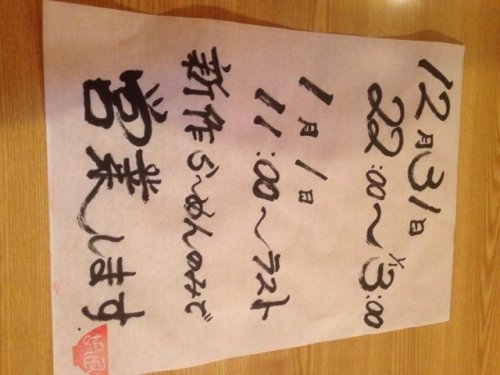 12月31日
22:00〜1/1 3:00
1月1日
11:00〜ラスト
新作らーめんのみで
営業します